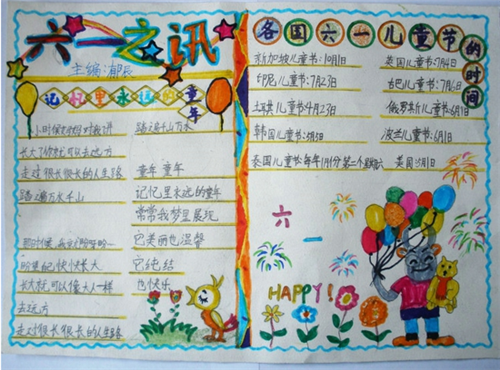 六一之讯
主编:郁辰
记忆里永远的童年
小时候妈妈对我讲
长大了你就可以去远方
走过很长很长的人生路
踏遍万水千山
那时候
盼望自己快快长大
长大就可以像大人一样
去远方
走过很长很长的人生路
踏遍万水千山
童年 童年
记忆里永远的童年
常常我梦里展现
它美丽也温馨
它纯洁
也快乐
各国六一儿童节的时间
新加坡儿童节:10月1日
印尼儿童节:7月23日
土耳其儿童节:4月23日
韩国儿童节:5月5日
泰国儿童节:每年1月份第二个星期六
英国儿童节:7月4日
巴儿童节:7月23日
俄罗斯儿童节:6月1日
波兰儿童节:6月1日
六一
HAPPY!